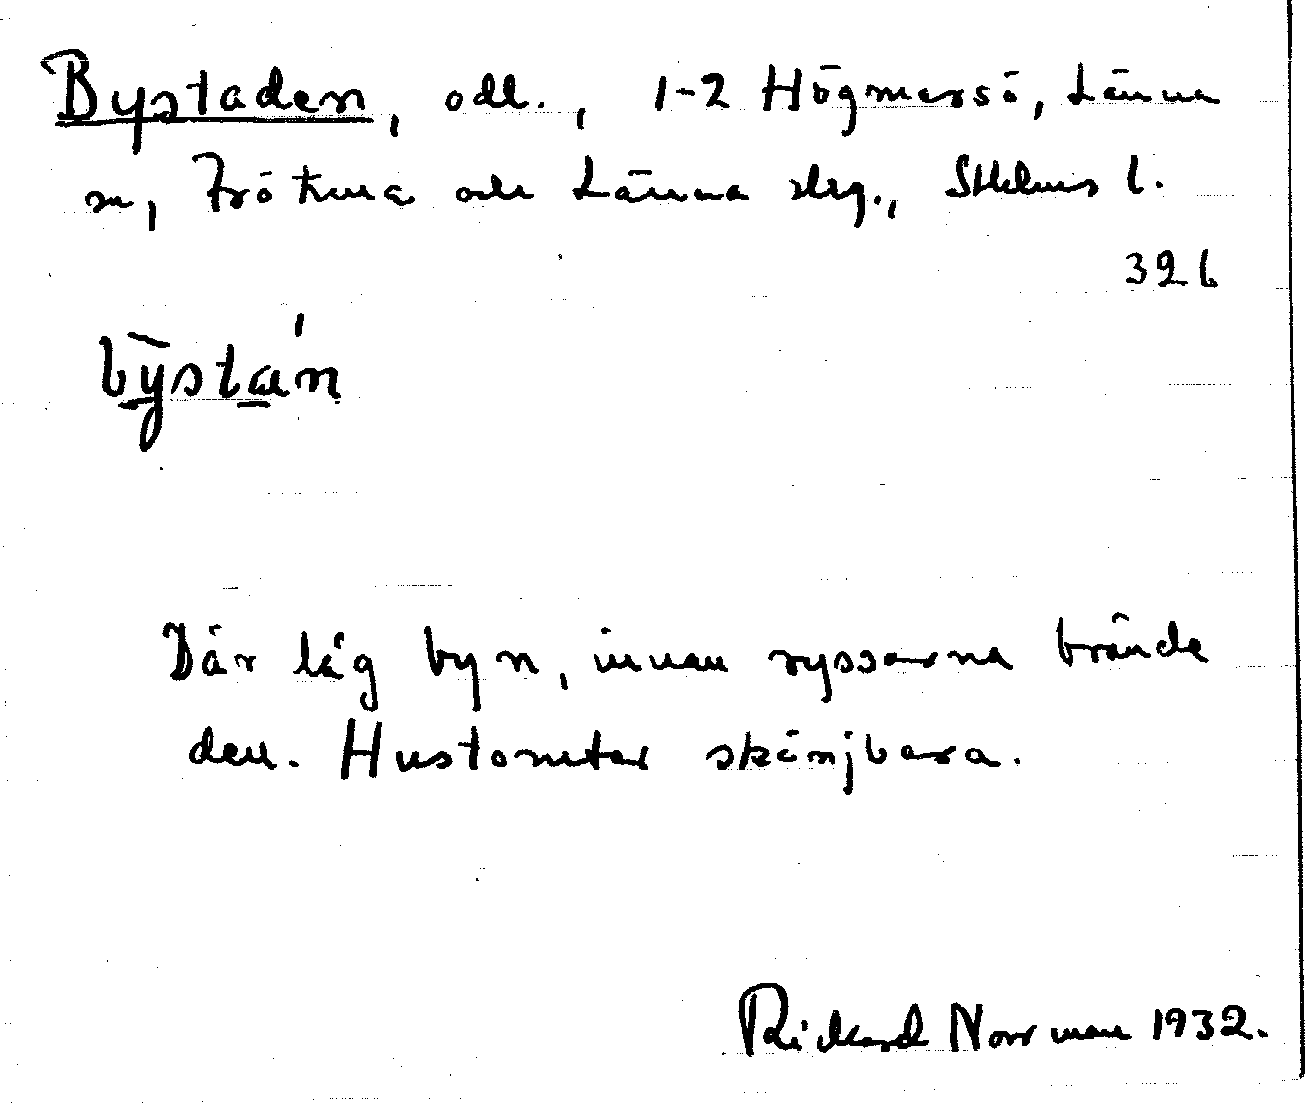 Bystaden, odl., 1-2 Högmarsö, Länna
sn, Frötuna och Länna skg., Sthlms l.
326
by̅stan
Där låg byn, innan ryssarna brände
den. Hustomter skönjbara.
Rickard Norrman 1932.